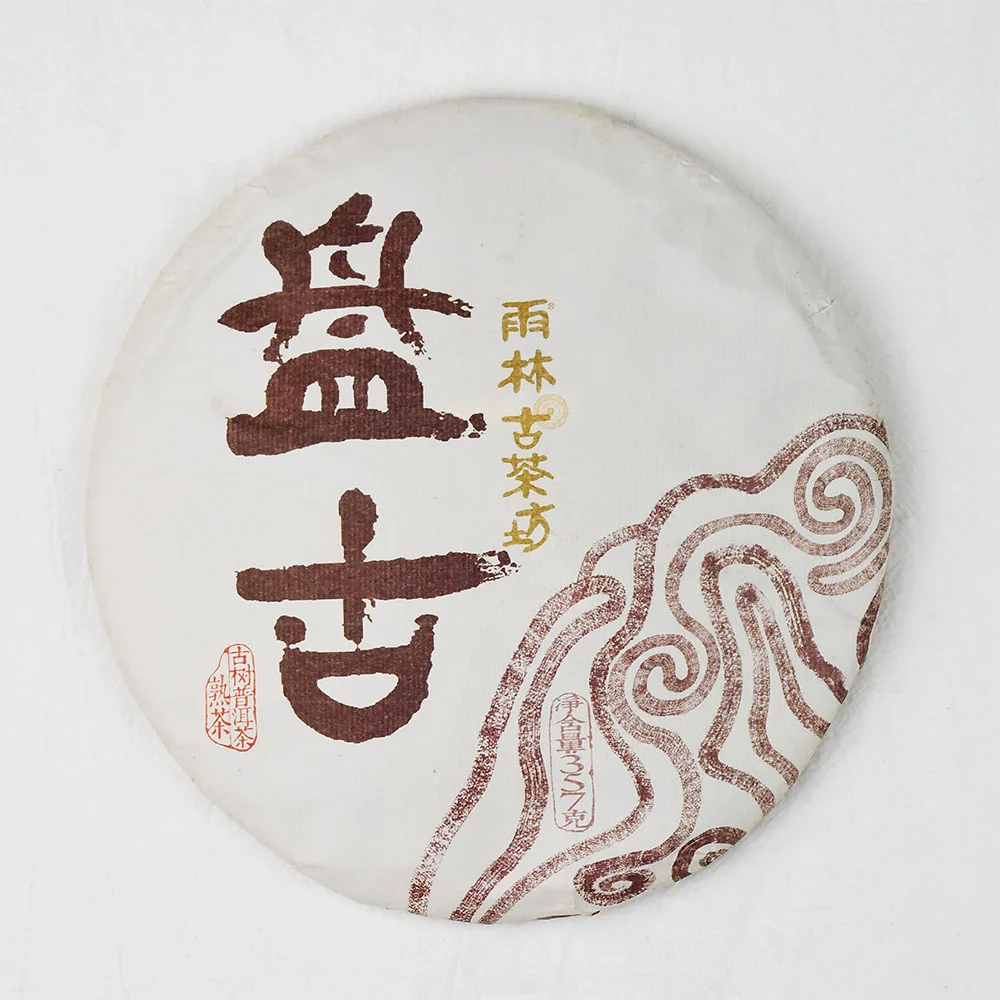 盘古
雨林古茶坊
古树普洱茶
熟茶
净含量357克